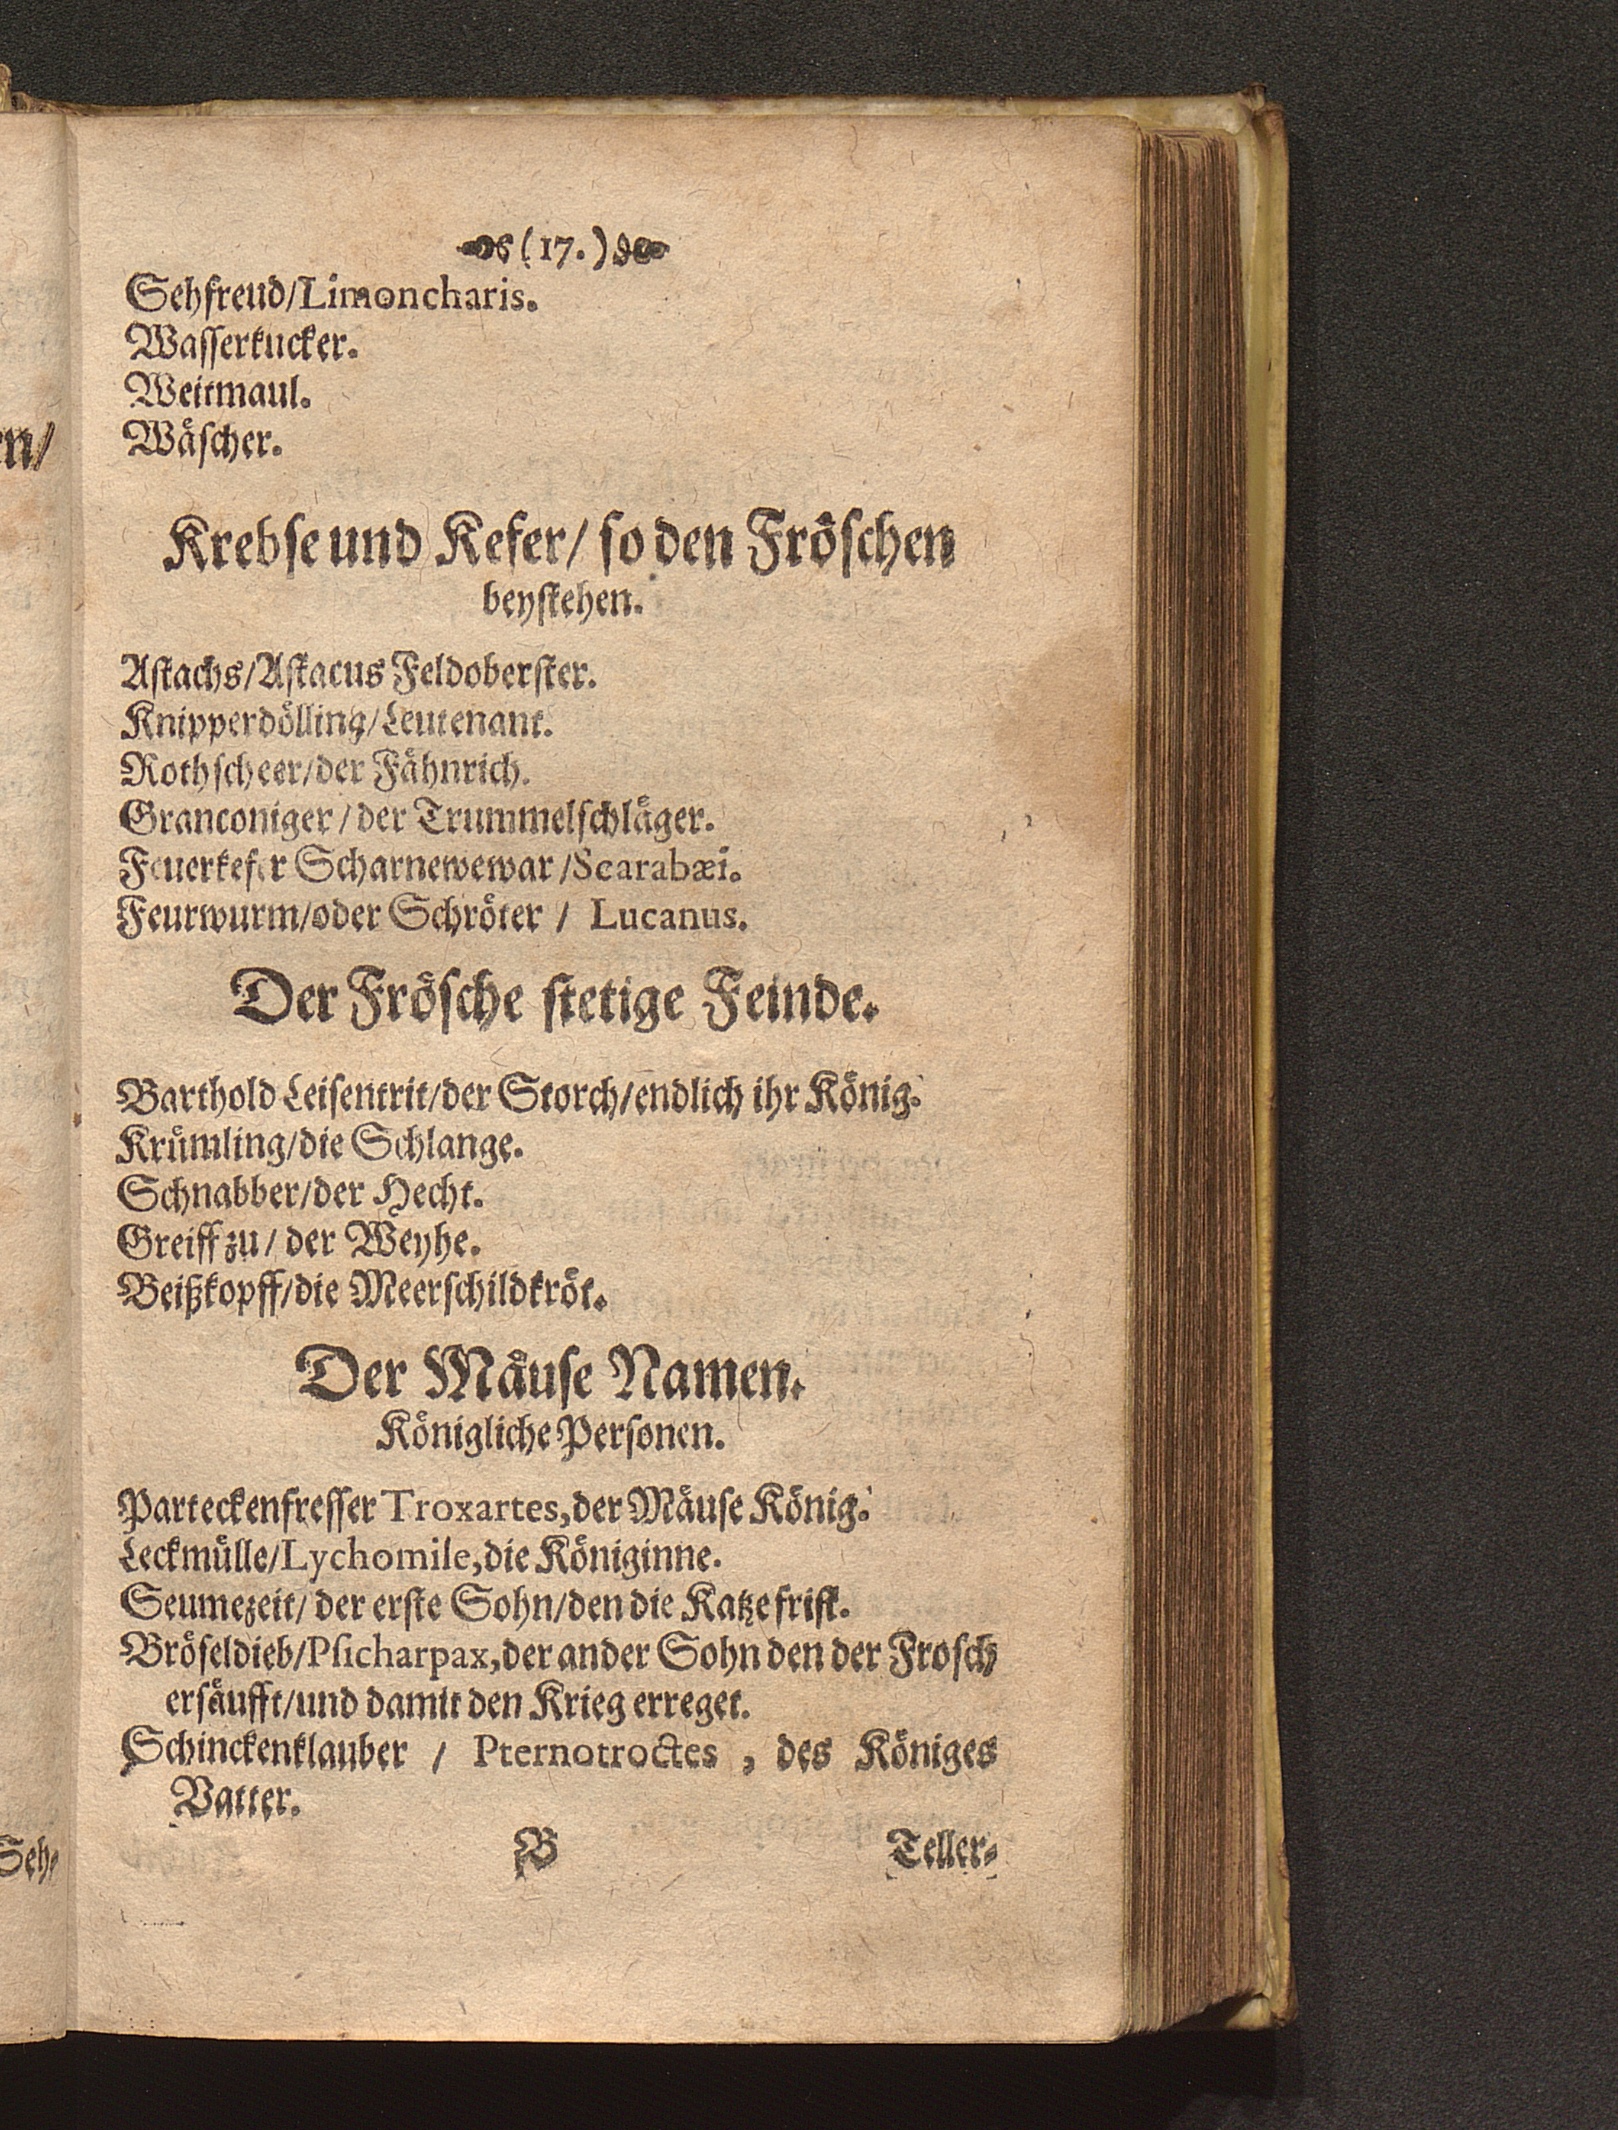 (17.)
Sehfreud/Limoncharis.
Wasserkucker.
Weitmaul.
Wäscher.
Krebse und Kefer/ so den Fröschen
beystehen.
Astachs/Astacus Feldoberster.
Knipperdölling/Leutenant.
Rothscheer/der Fähnrich.
Granconiger/der Trummelschläger.
Feuerkefer Scharnewewar/Scarabæi.
Feurwurm/oder Schröter / Lucanus.
Der Frösche stetige Feinde.
Barthold Leisentrit/der Storch/endlich ihr König.
Krümling/die Schlange.
Schnabber/der Hecht.
Greiff zu/ der Weyhe.
Beißkopff/die Meerschildkröt.
Der Mäuse Namen.
Königliche Personen.
Parteckenfresser Troxartes, der Mäuse König.
Leckmülle/Lychomile, die Königinne.
Seumezeit/ der erste Sohn/den die Katze frist.
Bröseldieb/Psicharpax, der ander Sohn den der Frosch
ersäufft/und damit den Krieg erreget.
Schinckenklauber / Pternotroctes , des Königes
Vatter.
B Teller-
en/
Seh-